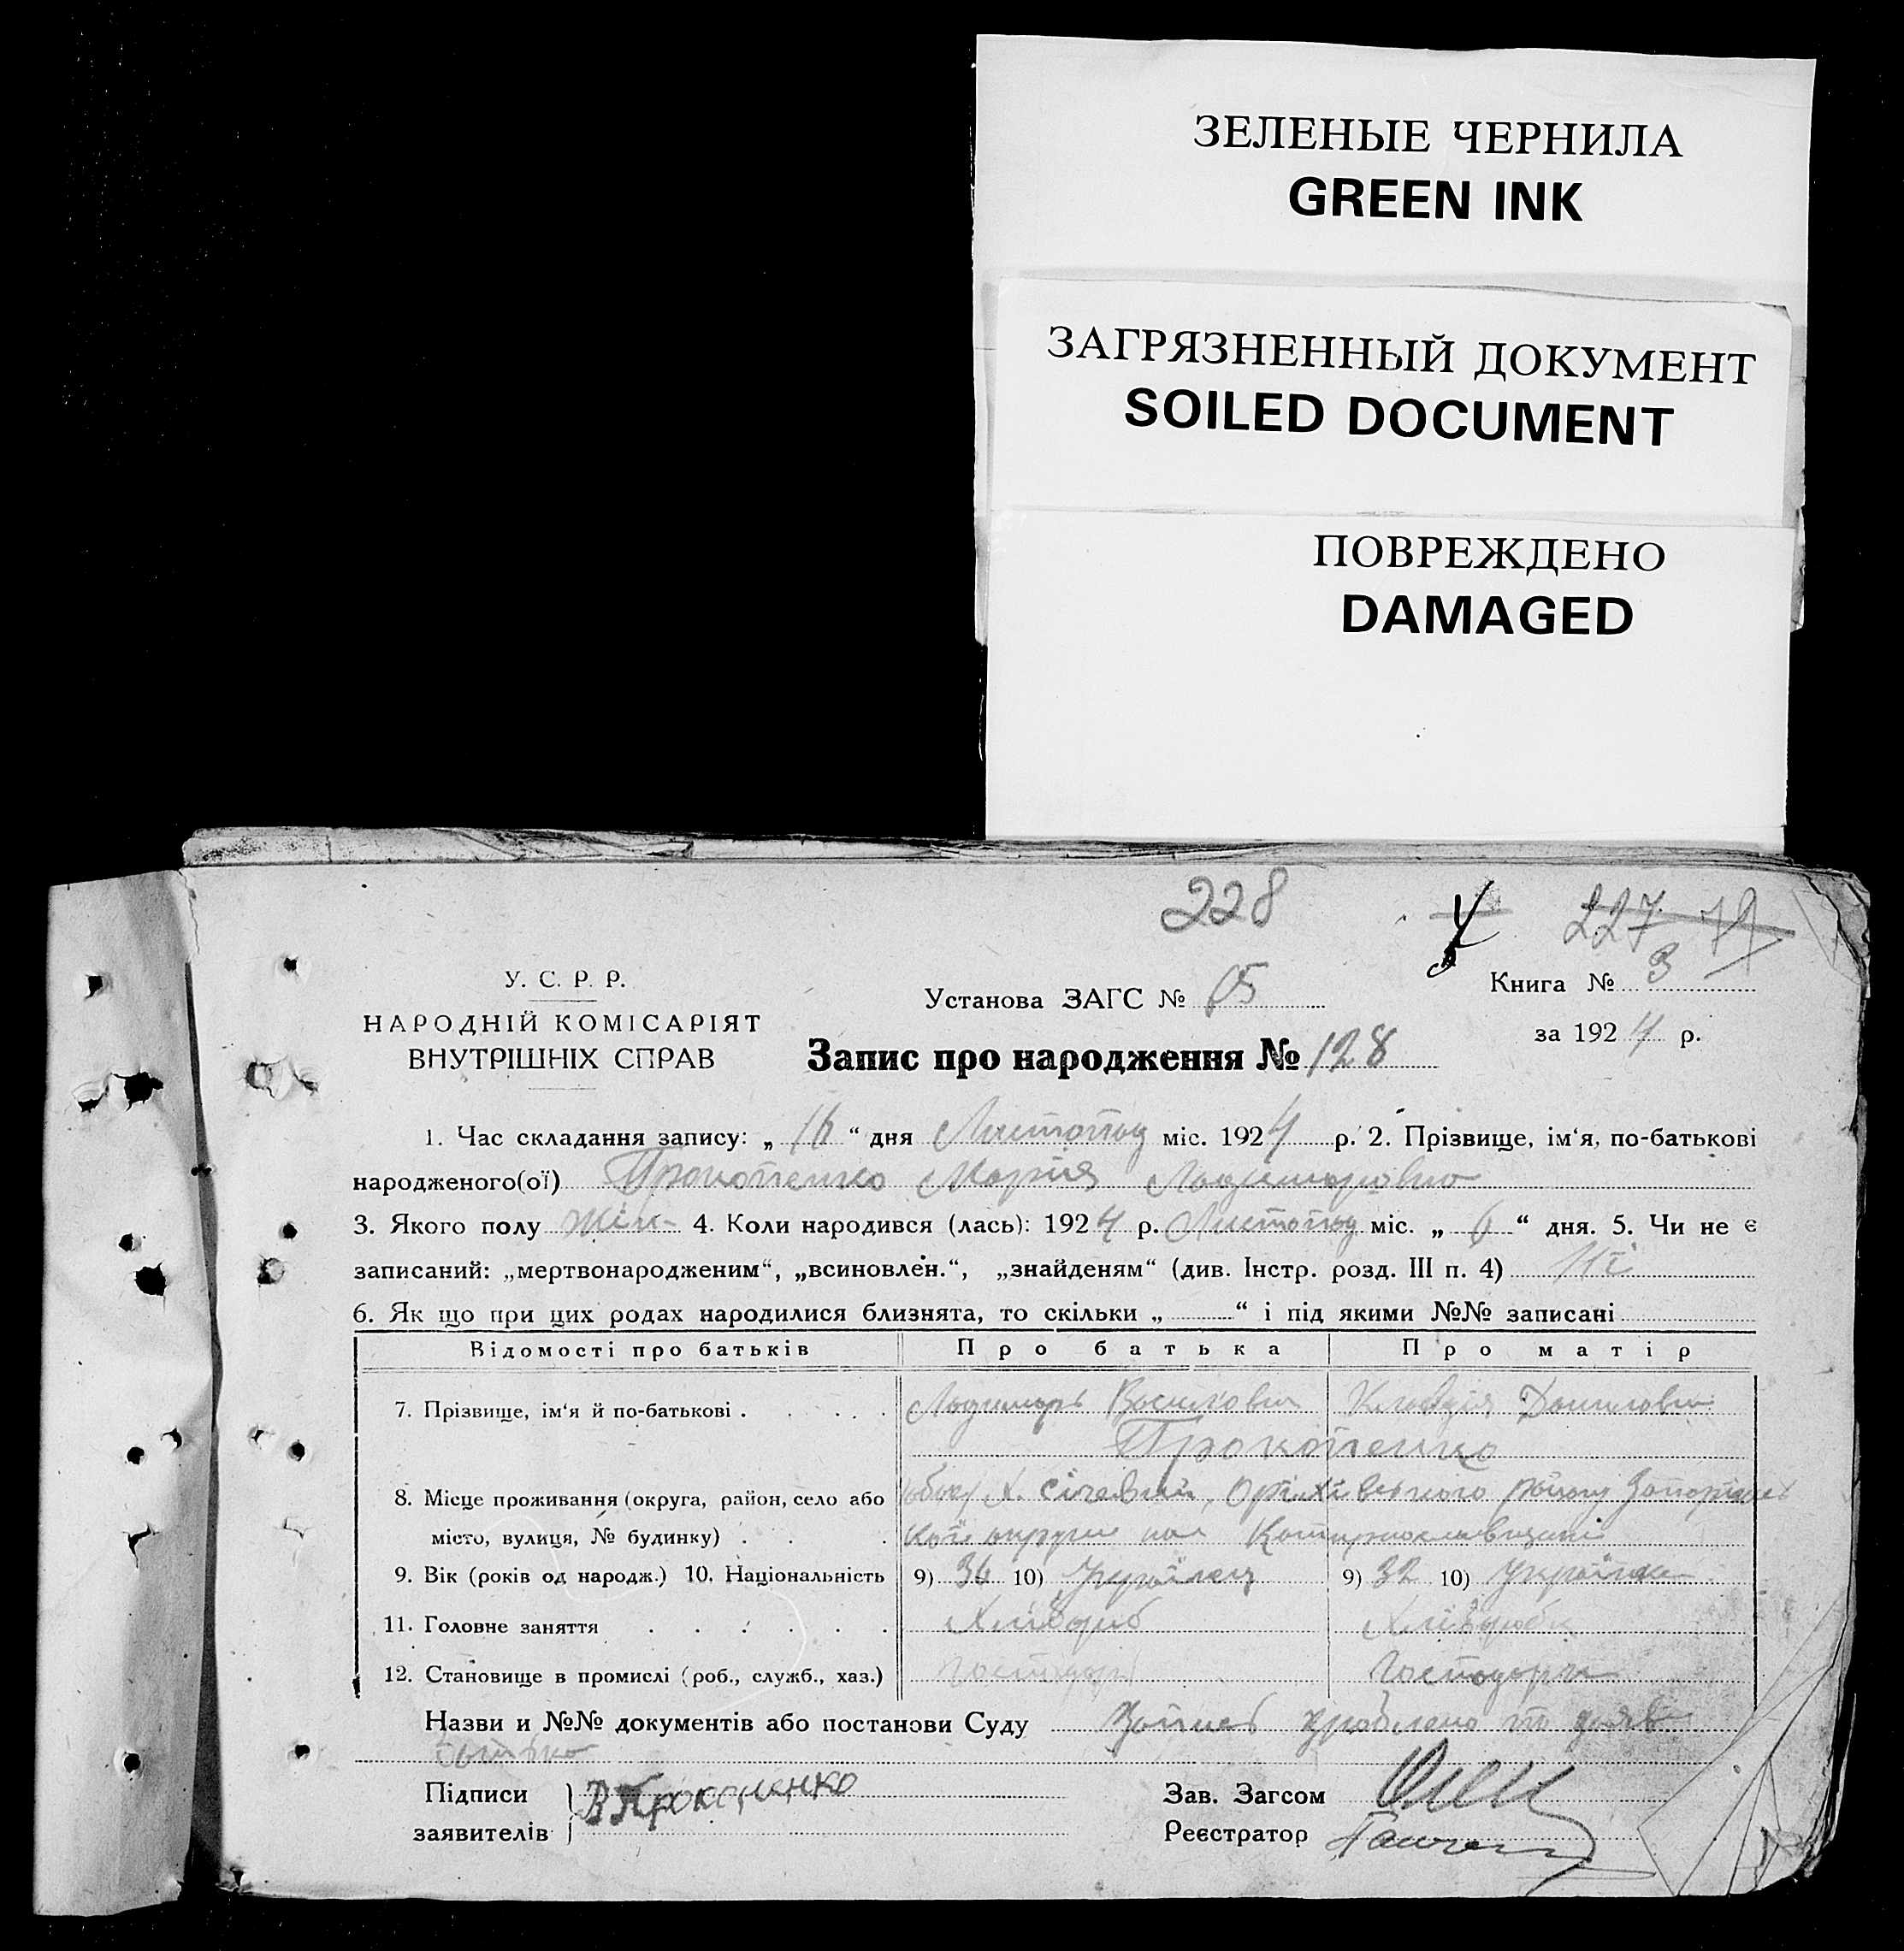 ЗЕЛЕНЫЕ ЧЕРНИЛА
GREEN INK
ЗАГРЯЗНЕННЫЙ ДОКУМЕНТ
SOILED DOCUMENT
ПОВРЕЖДЕНО
DAMAGED
228
227
У. С. Р. Р.
НАРОДНІЙ КОМІСАРІЯТ
ВНУТРІШНІХ СПРАВ
Установа ЗАГС №
Книга № 3
за 1924 р.
Запис про народження № 128
1. Час складання запису: „ 16 “ дня Листопад міс. 1924 р. 2. Прізвище, ім‘я, по-батькові
народженого(ої) Прокопенко Марія Лодимировно
3. Якого полу жін- 4. Коли народився (лась): 1924 р. Листопад міс. „ 6 “ дня. 5. Чи не є
записаний: „мертвонародженим“, „всиновлен.“, „знайденям“ (див. Інстр. розд. III п. 4) ні
6. Як що при цих родах народилися близнята, то скільки „ “ і під якими №№ записані
Відомості про батьків Про батька Про матір
7. Прізвище, ім‘я й по-батькові Василович Клавдія Даниловна
Прокопенко
8. Місце проживання (округа, район, село або х. Січевий, Оріхівського району Запоріжс
місто, вулиця, № будинку) кої округи на Катеринославщині
9. Вік (років од народж.) 10. Національність 9) 36 10) Українец 9) 32 10) Українка
11. Головне заняття Хлібороб Хлібороб
12. Становище в промислі (роб., служб., хаз.) Господар Господарка
Назви и №№ документів або постанови Суду Запись зроблено по заяві
батька
Підписи
заявителів
ВПрокопенко
Зав. Загсом
Реєстратор